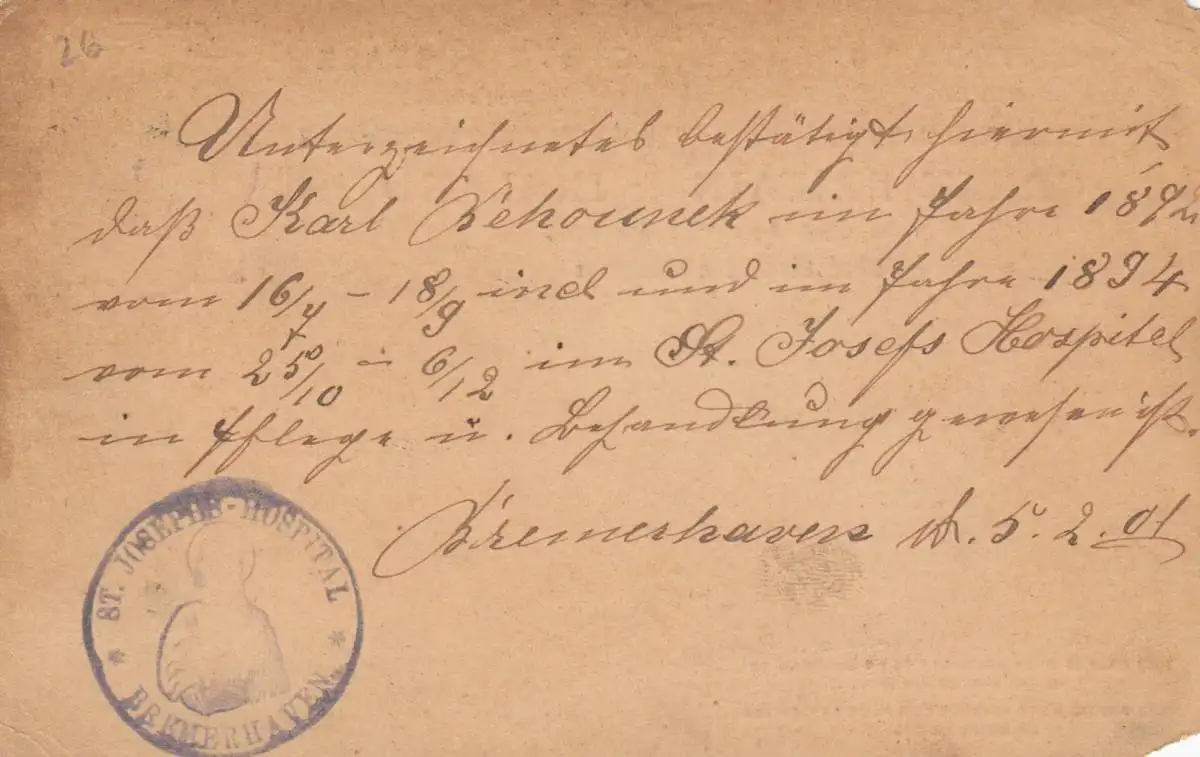 26
Unterzeichnetes bestätigt hiermit
daß Karl Behounek im Jahre 1892
vom 16/7 - 18/9 incl und im Jahre 1894
vom 25/10 - 6/12 im St. Josefs Hospital
in Pflege u. Behandlung gewesen ist.
Bremerhaven d. 5. 2. 01
ST. JOSEPHS-HOSPITAL
* BREMERHAVEN. *